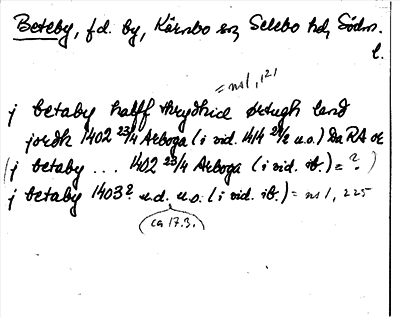 Beteby, f.d. by, Kärnbo sn, Selebo hd, Södm.
l.
= ns 1, 121
j betaby halff thrydhia ørtugh land
jordh 1402 23/4 Arboga (i vid. 1414 24/2 u.o.) Da RA or
(j betaby ... 1402 23/4 Arboga (i vid. ib.) = ?)
j betaby 1403? u.d. u.o. (i vid. ib.) = ns 1, 225
(ca 17.3.)